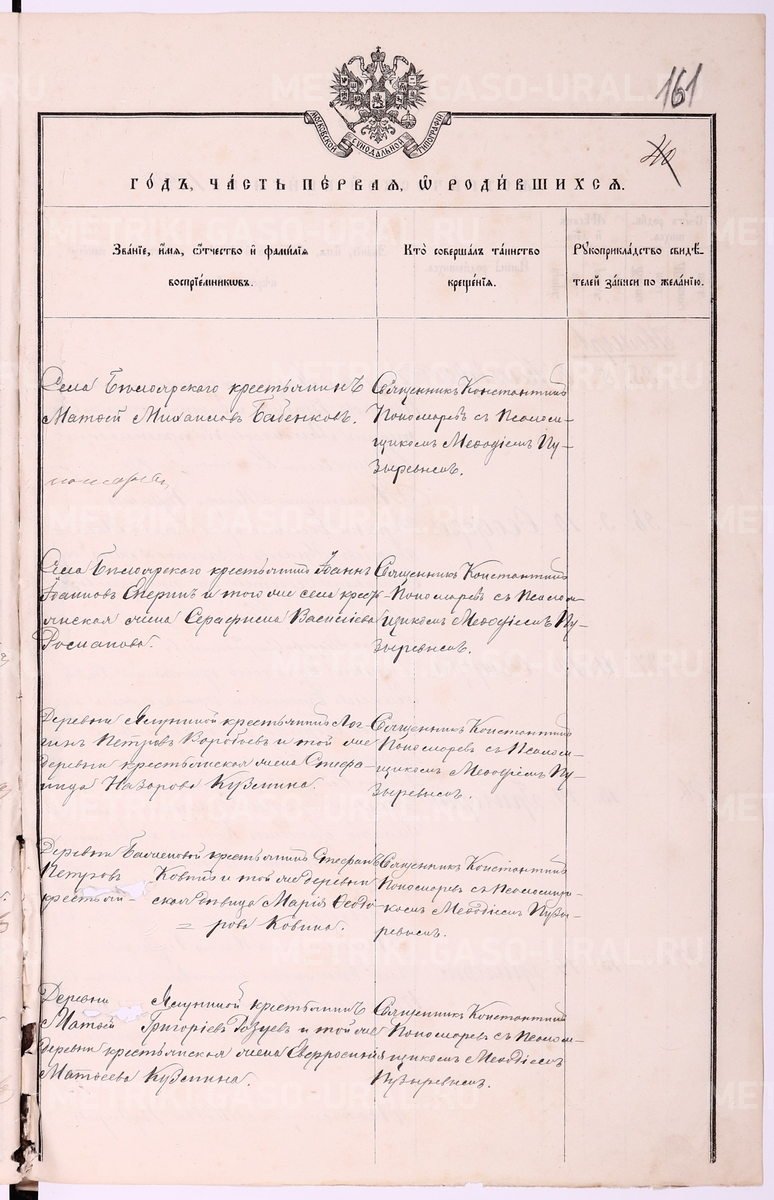 161
40
МОСКОВСКОЙ СУНОДАЛЬНОЙ ТИПОГРАФІИ
ГО́ДЪ, ЧА́СТЬ ПЕ́РВАЯ, Ѡ҆ РОДИ́ВШИХСЯ.
Зва́нїе, и҆́мя, ѻ҆́тчество и҆ фами́лїя
воспрїе́мникѡвъ.
Кто̀ соверша́лъ та́инство
креще́нїя.
Рꙋкоприкла́дство свидѣ́-
телей за́писи по жела́нїю.
Села Бѣлоярского крестьянинъ
Матѳей Михаиловъ Бабенковъ.
Священникъ Константинъ
Пономаревъ съ Псалом-
щикомъ Меѳодіемъ Пу-
зыревымъ.
Села Бѣлоярского крестьянинъ Іоаннъ
Іоанновъ и того же села крест-
янская жена Серафима Василіева
Романова.
Священникъ Константинъ
Пономаревъ съ Псалом-
щикомъ Меѳодіемъ Пу-
зыревымъ.
Деревни Ялуниной крестьянинъ Лог-
гинъ Петровъ Воробьевъ и той же
деревни крестьянская жена Стефа-
нида Назарова Кузмина.
Священникъ Константинъ
Пономаревъ съ Псалом-
щикомъ Меѳодіемъ Пу-
зыревымъ.
Деревни крестьянинъ Стефанъ
Петровъ Ковинъ и той же деревни
крестьян- ская дѣвица Марія Ѳеодо-
= рова Ковина.
Священникъ Константинъ
Пономаревъ съ Псаломщи-
комъ Меѳодіемъ Пузы-
ревымъ.
Деревни Ялуниной крестьянинъ
Матѳей Григоріевъ и той же
деревни крестьянская жена Евфросинія
Матѳеева Кузмина.
Священникъ Константинъ
Пономаревъ съ Псалом-
щикомъ Меѳодіемъ
Пузыревымъ.
METRIKI.GASO-URAL.RU